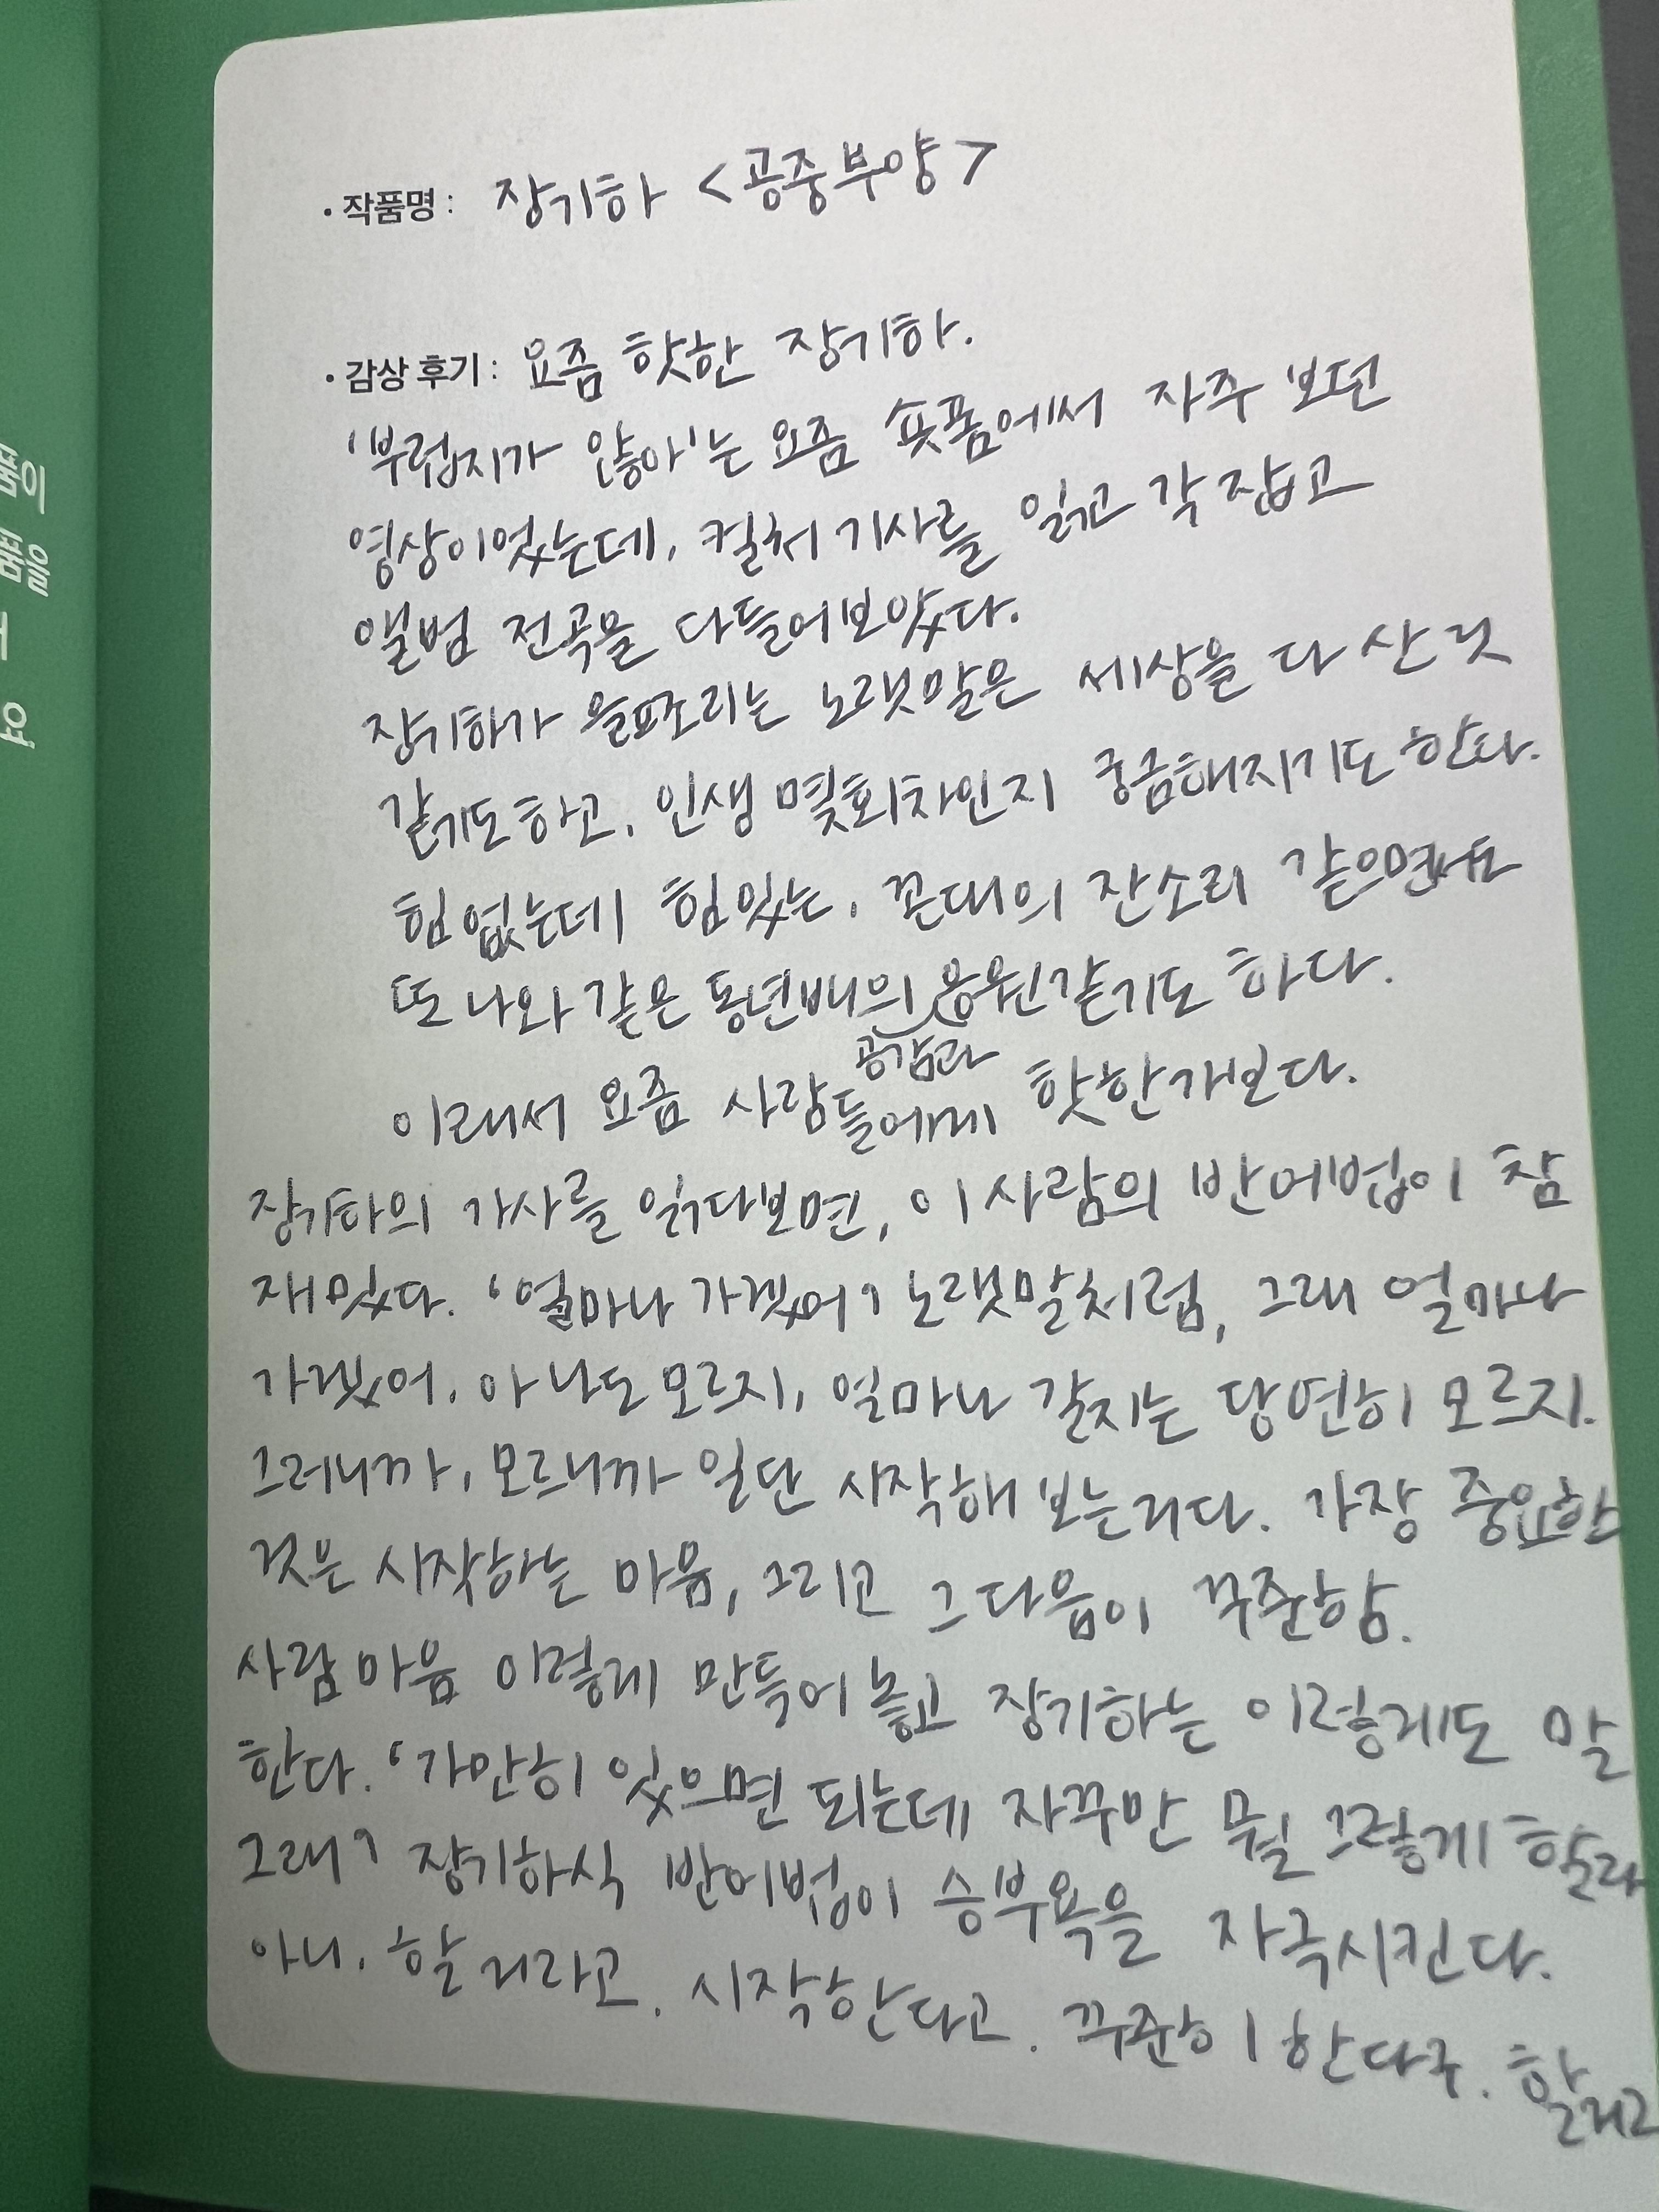 품이
품을
요
• 작품명 : 장기하 <공중부양>
• 감상 후기 : 요즘 핫한 장기하.
'부럽지가 않아'는 요즘 숏폼에서 자주 보던
영상이었는데, 컬처 기사를 읽고 각 잡고
앨범 전곡을 다 들어보았다.
장기하가 읊조리는 노랫말은 세상을 다 산 것
같기도 하고, 인생 몇회차인지 궁금해지기도 한다.
힘 없는데 힘있는, 꼰대의 잔소리 같으면서도
또 나와 같은 동년배의 공감과 응원같기도 하다.
이래서 요즘 사람들에게 핫한가보다.
장기하의 가사를 읽다보면, 이 사람의 반어법이 참
재밌다. '얼마나 가겠어' 노랫말처럼, 그래 얼마나
가겠어. 아 나도 모르지, 얼마나 갈지는 당연히 모르지.
그러니까, 모르니까 일단 시작해 보는거다. 가장 중요한
것은 시작하는 마음, 그리고 그 다음이 꾸준함.
사람 마음 이렇게 만들어 놓고 장기하는 이렇게도 말
한다. '가만히 있으면 되는데 자꾸만 뭘 그렇게 할라
그래' 장기하식 반어법이 승부욕을 자극시킨다.
아니, 할 거라고. 시작한다고. 꾸준히 한다구. 할거고